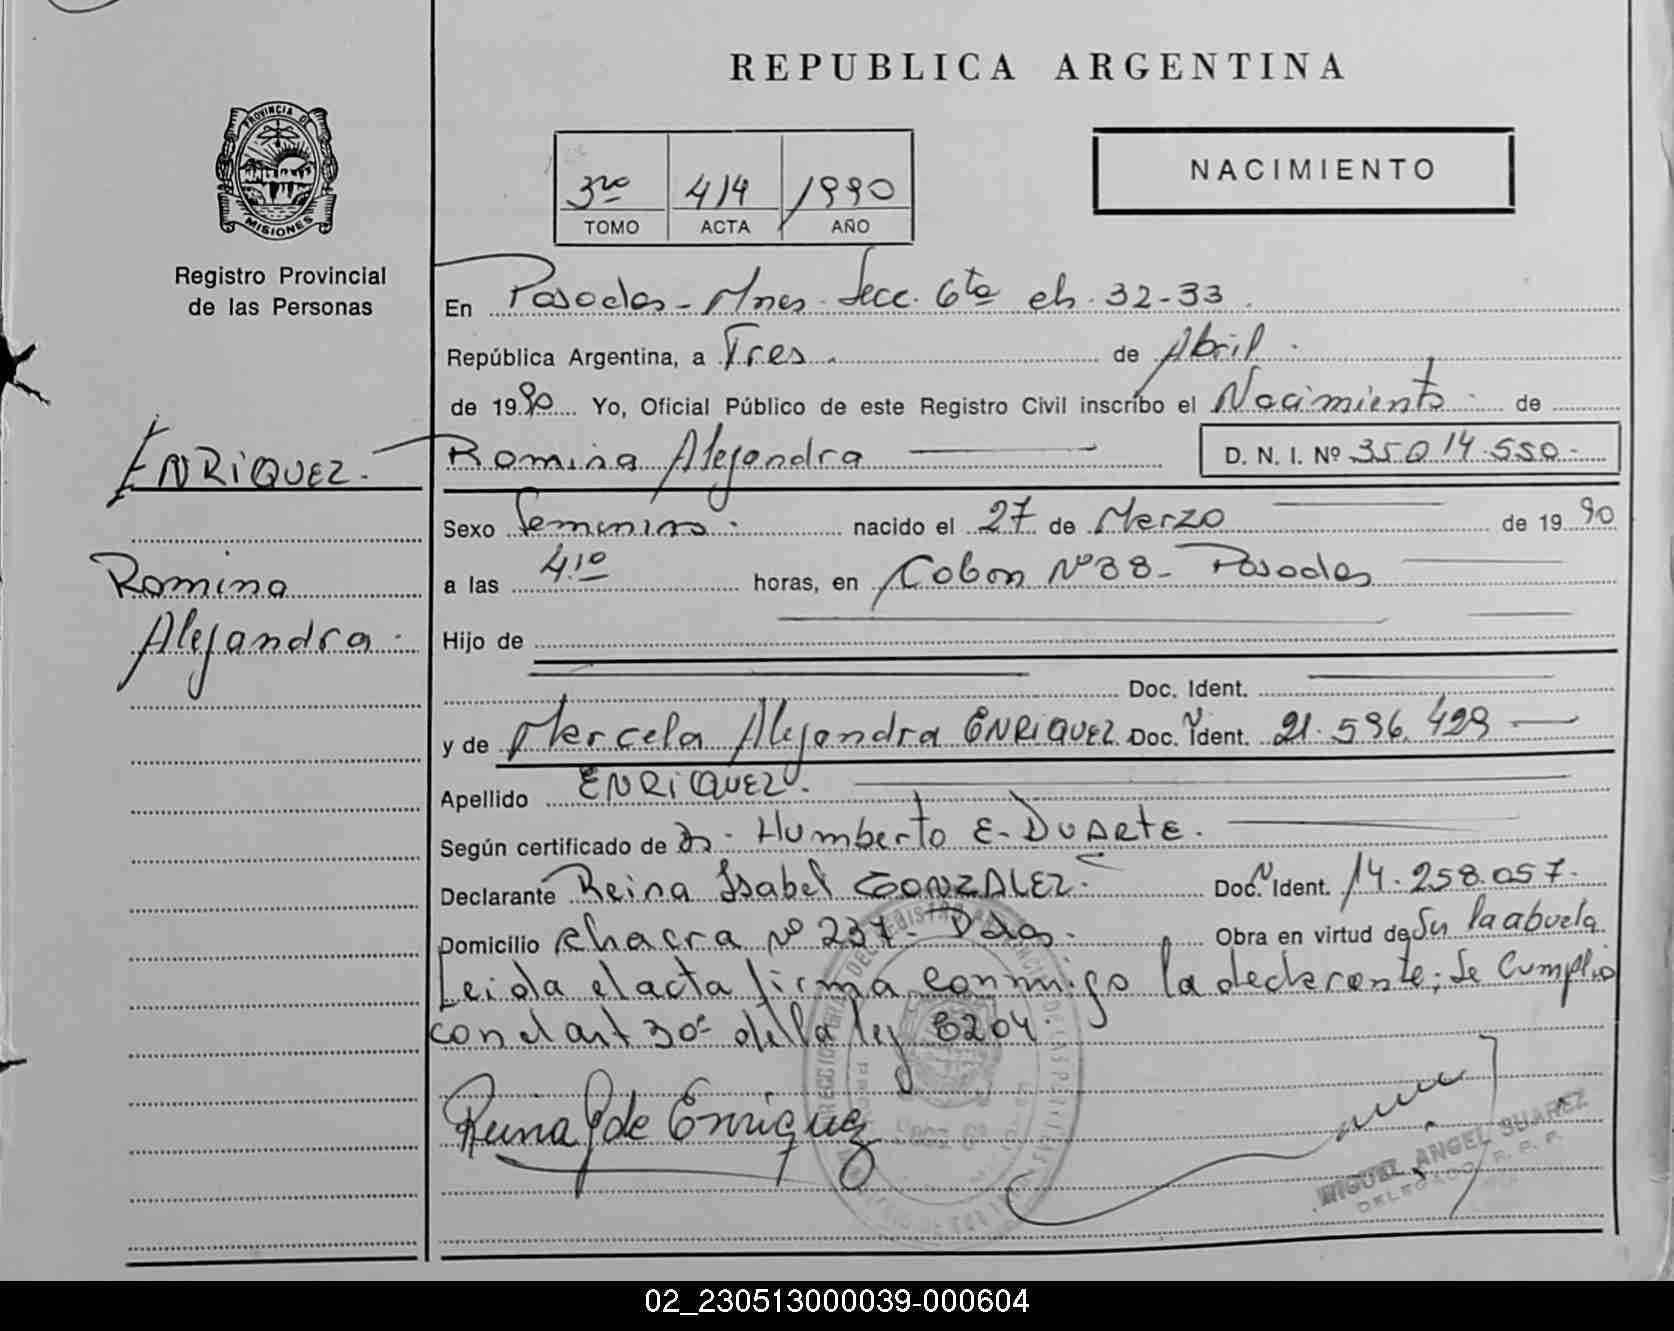 REPUBLICA ARGENTINA
PROVINCIA DE
MISIONES
Registro Provincial
de las Personas
3ro 414 1990
TOMO ACTA AÑO
NACIMIENTO
En Posadas - Mnes. Secc. 6ta ch. 32-33.
República Argentina, a Tres de Abril.
de 1990 Yo, Oficial Público de este Registro Civil inscribo el Nacimiento de
ENRIQUEZ.- Romina Alejandra D. N. I. Nº 35.014.550.-
Sexo Femenino. nacido el 27 de Marzo de 1990
Romina
Alejandra.
a las 4.10 horas, en Colon Nº 38 - Posadas
Hijo de
Doc. Ident.
y de Marcela Alejandra ENRIQUEZ Doc. N Ident. 21.596.429
Apellido ENRIQUEZ.
Según certificado de Dr. Humberto E. DUARTE.
Declarante Reina Isabel GONZALEZ.- Doc. N Ident. 14.258.057.
Domicilio Chacra Nº 237- Pdas. Obra en virtud de Ser la abuela
Leida el acta firma conmigo la declarante; Se Cumplio
con el art 30º de la ley 8204.
Reina G de Enriquez
SECC 6º
MIGUEL ANGEL SUAREZ
DELEGADO R. P. P.
02_230513000039-000604